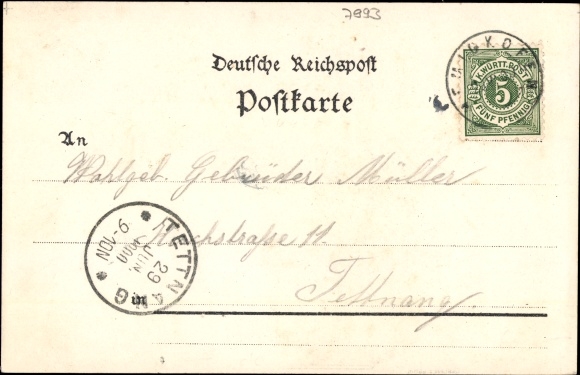 7893
Deutsche Reichspost
Postkarte
K. WÜRTT. POST
5
FÜNF PFENNIG
An
Gebrüder Müller
TETTNANG
29 JUN
9-10N
11.
in Tettnang.